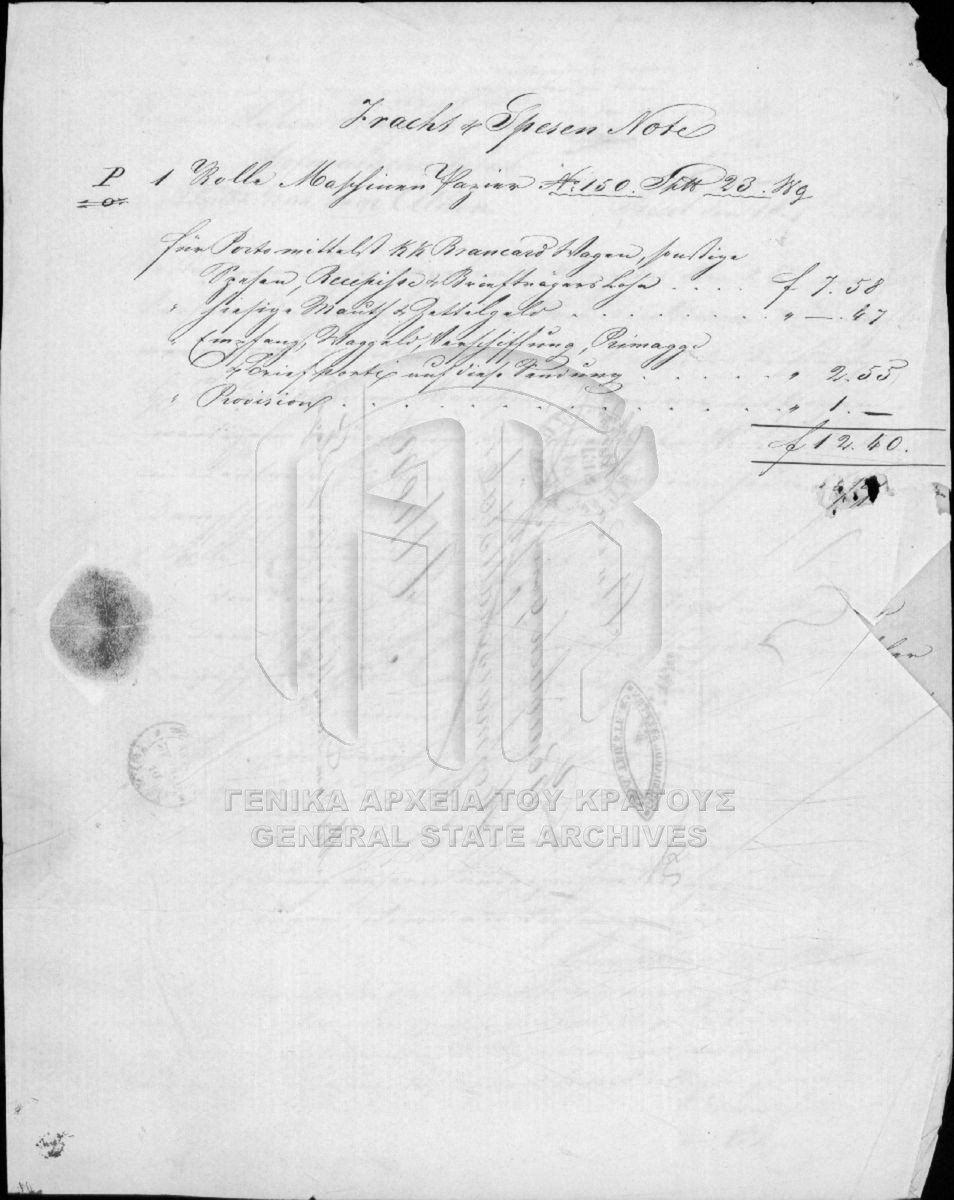 Fracht & Spesen Note
P 1 Rolle Maschinen Papier No 150. Sp ℔ 23. Wg
für Porto mittelst KK Brancard Wagen, sonstige
Spesen, Recepisse & Briefträgers Lohn . . . . f 7. 58
" hiesige Mauth & Zettelgeld . . . . . . . . . " —. 47
" Empfang, Waggeld, Verschiffung, Primagge
& Brief porti auf diese Sendung . . . . . . " 2. 55
" Provision . . . . . . . . . . . . . . . " 1. —
f 12. 40.
ΓΕΝΙΚΑ ΑΡΧΕΙΑ ΤΟΥ ΚΡΑΤΟΥΣ
GENERAL STATE ARCHIVES